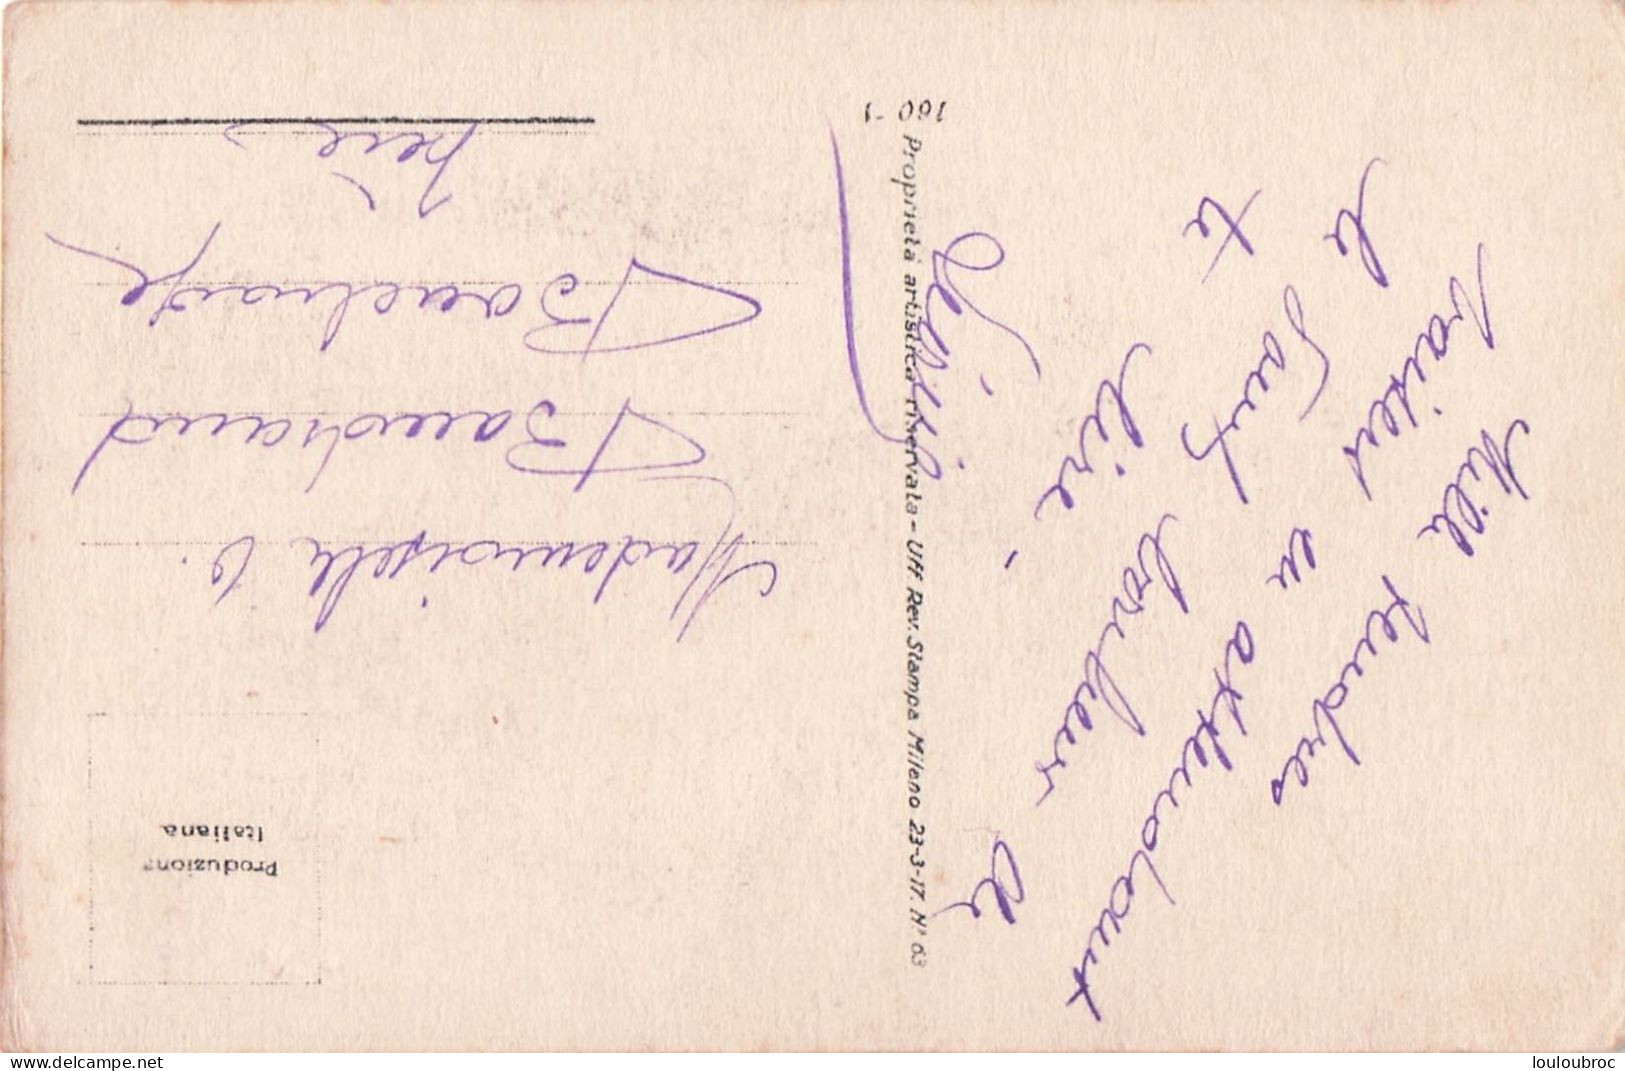 Mille tendres
baisers en attendant
le Tant bonheur de
te lire.
Produzione
Italiana
Mademoiselle O.
Baudrand
Proprietà artistica riservata - Uff. Rev. Stampa Milano 23-3-17. N° 63
160 - 1
www.delcampe.net
louloubroc